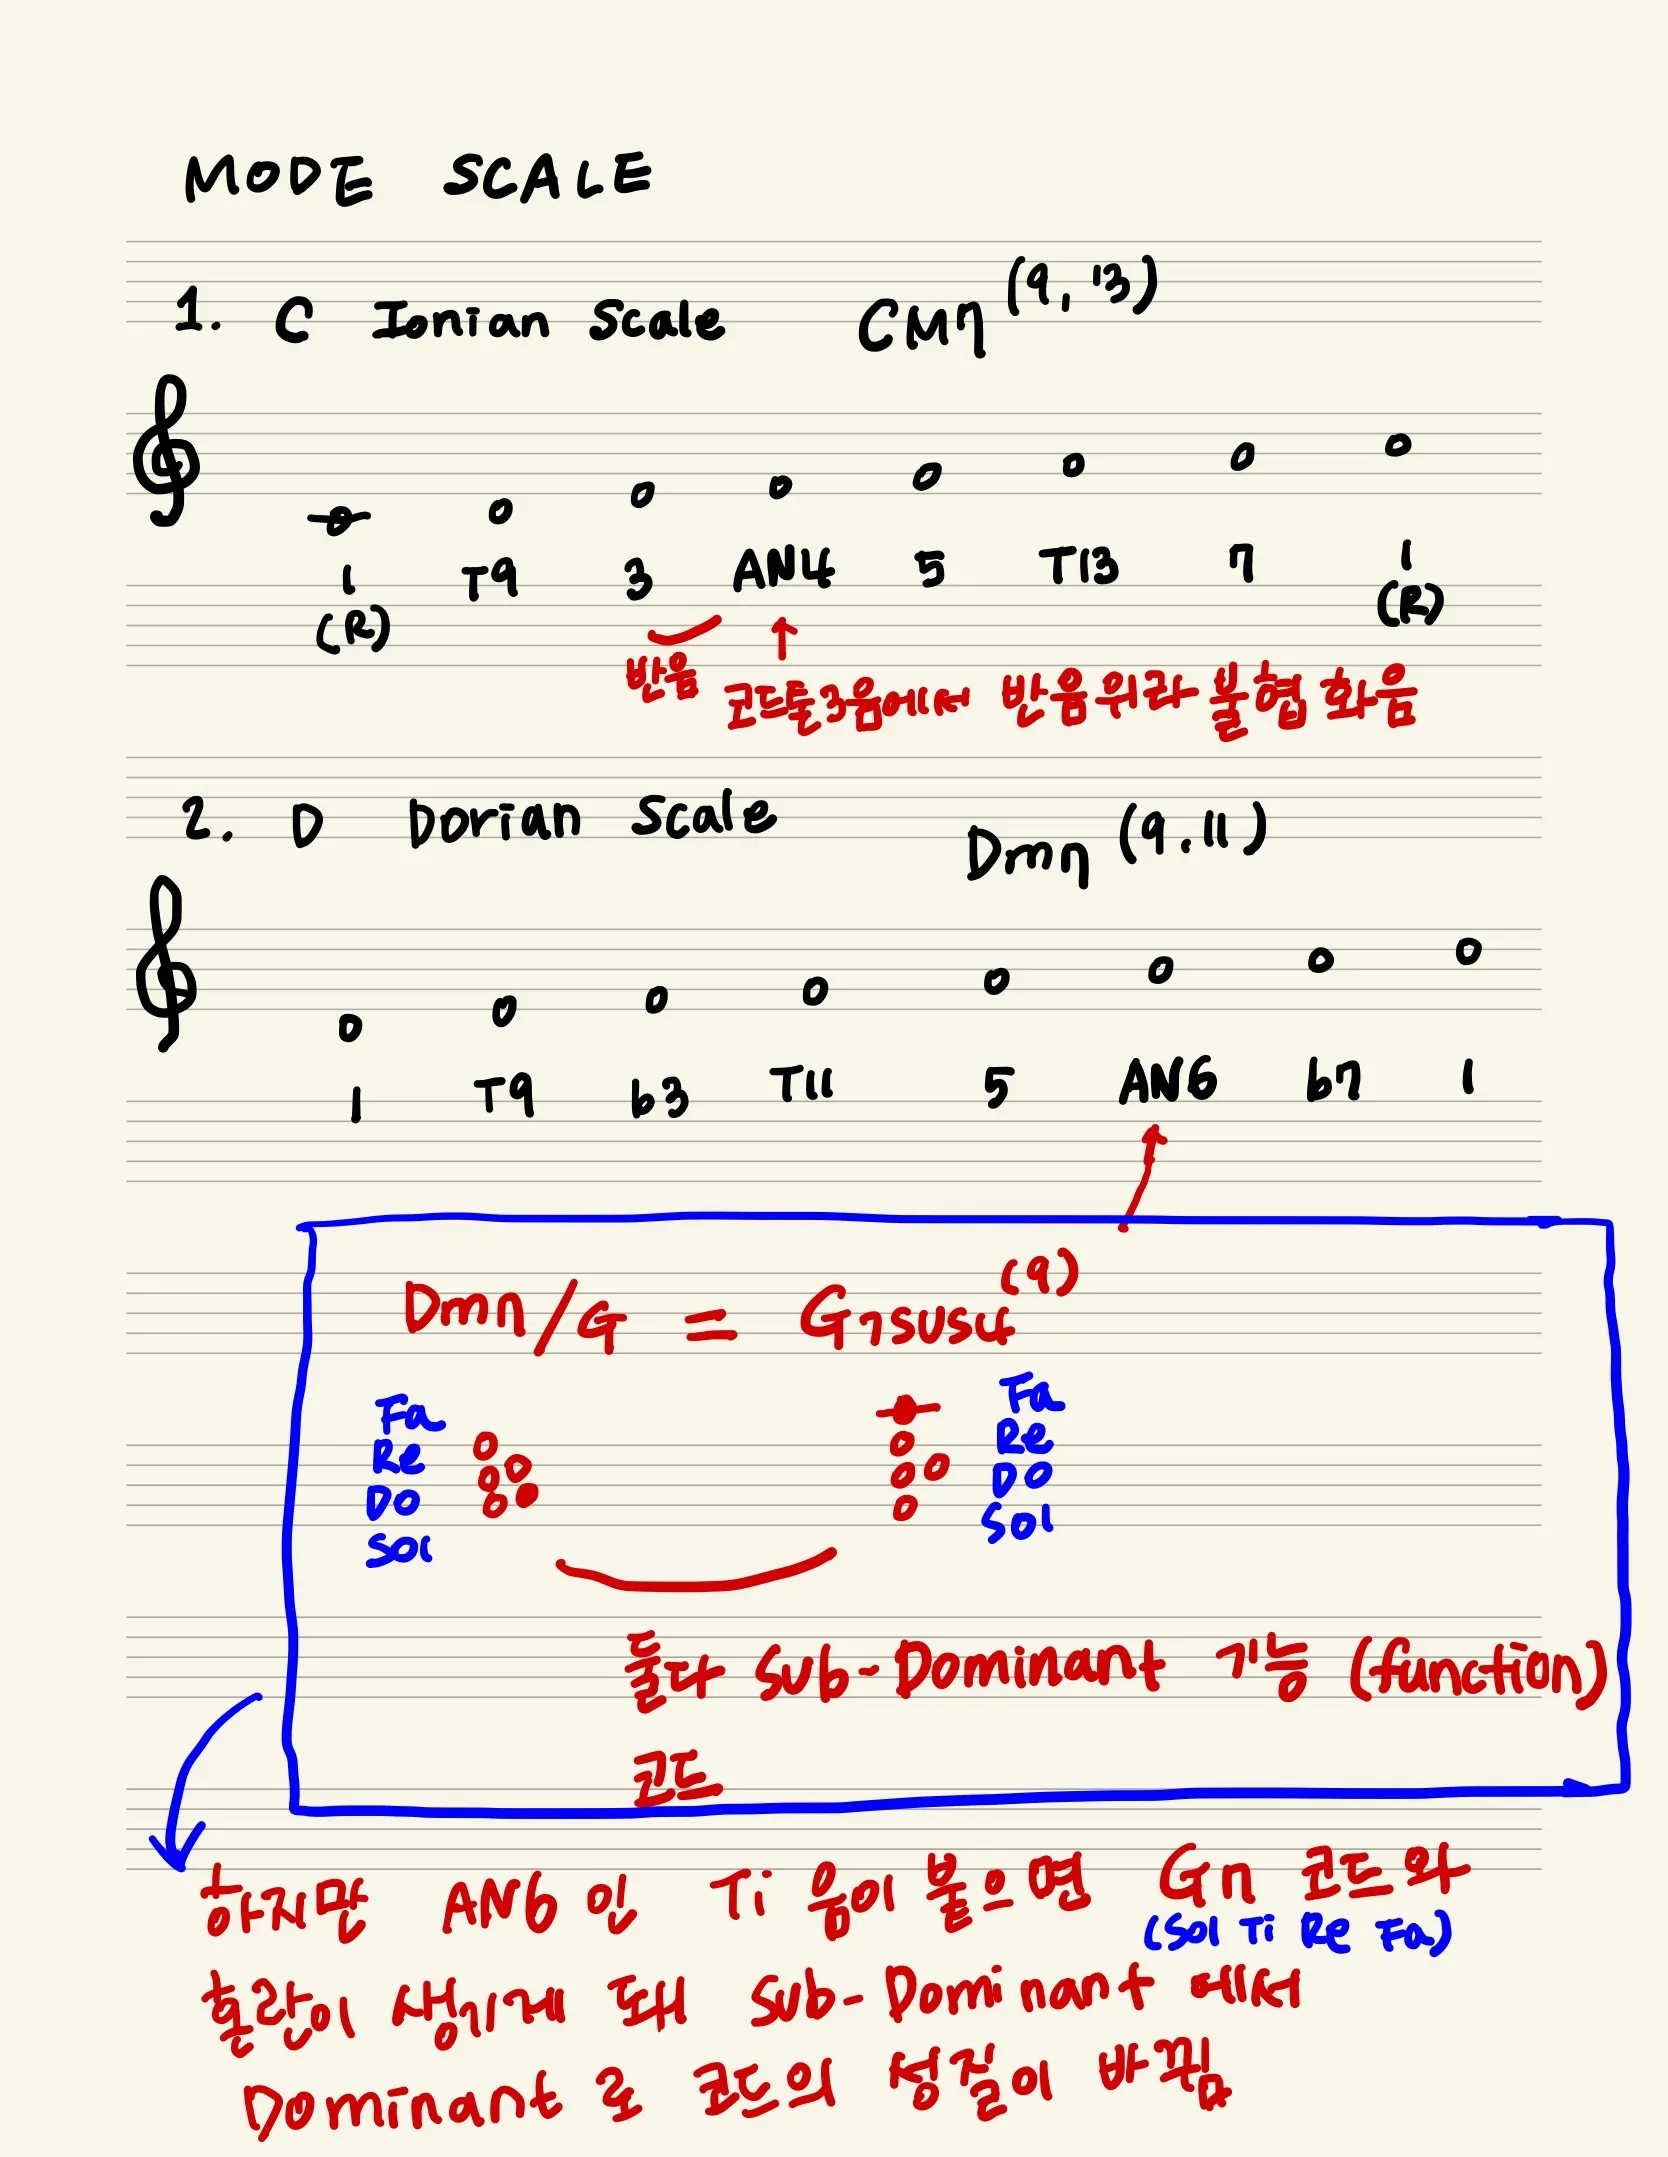 MODE SCALE
1. C Ionian Scale CM7 (9, 13)
1 T9 3 AN4 5 T13 7 1
(R) (R)
반음 코드톤3음에서 반음위라 불협화음
2. D Dorian Scale Dm7 (9.11)
1 T9 b3 T11 5 AN6 b7 1
Dm7/G = G7sus4 (9)
Fa Fa
Re Re
Do Do
Sol Sol
둘다 Sub-Dominant 기능 (function)
코드
하지만 AN6인 Ti 음이 붙으면 G7 코드와
(Sol Ti Re Fa)
혼란이 생기게 돼 Sub-Dominant 에서
Dominant 로 코드의 성질이 바뀜